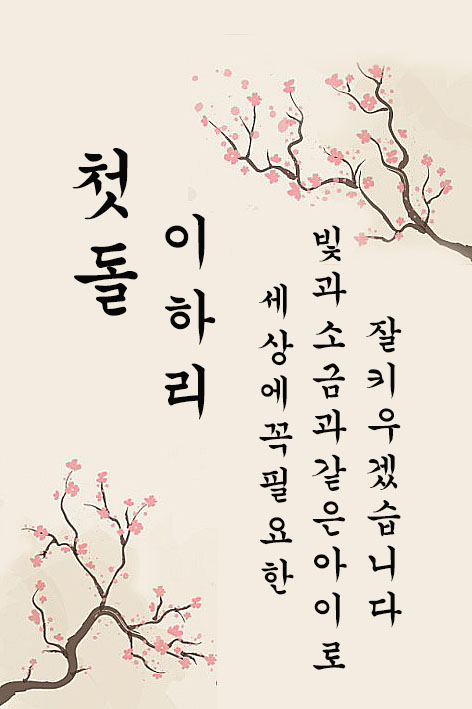 첫돌
이하리
세상에꼭필요한
빛과소금과같은아이로
잘키우겠습니다